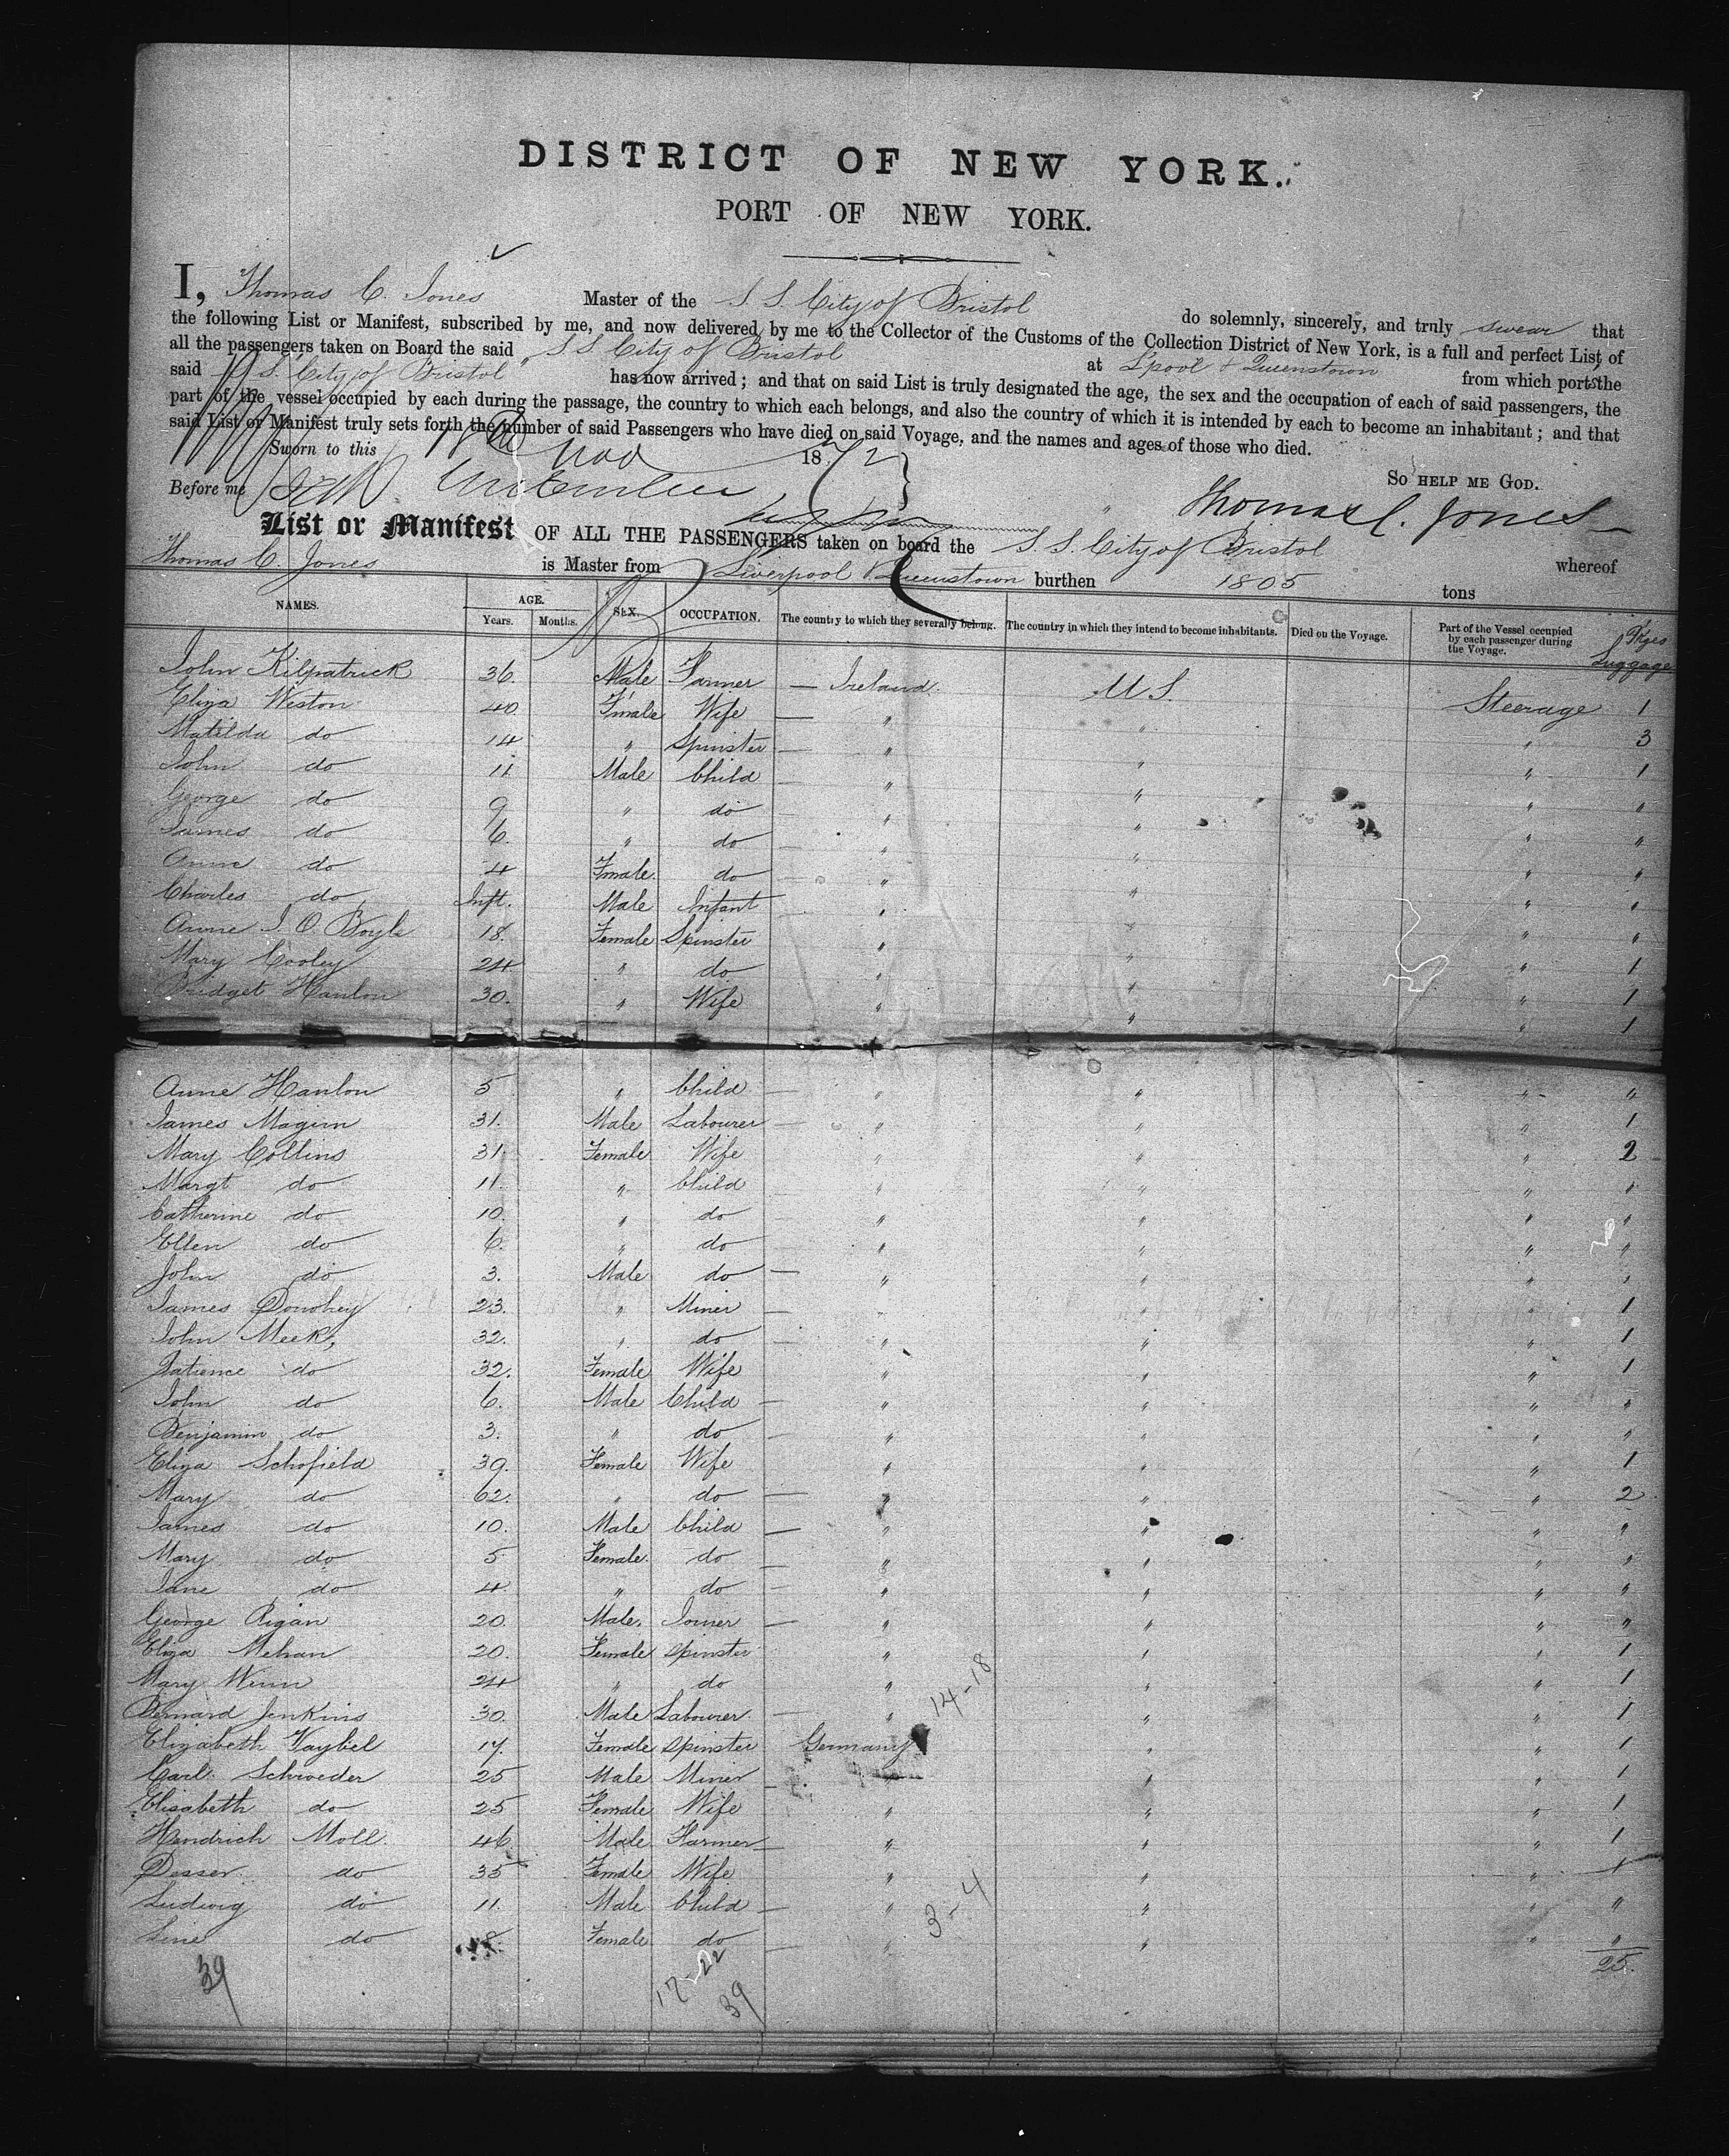 DISTRICT OF NEW YORK.
PORT OF NEW YORK.
I, Thomas C. Jones Master of the S S. City of Bristol do solemnly, sincerely, and truly swear that
the following List or Manifest, subscribed by me, and now delivered by me to the Collector of the Customs of the Collection District of New York, is a full and perfect List of
all the passengers taken on Board the said S S City of Bristol at L'pool & Queenstown from which ports the
said S S. City of Bristol has now arrived; and that on said List is truly designated the age, the sex and the occupation of each of said passengers, the
part of the vessel occupied by each during the passage, the country to which each belongs, and also the country of which it is intended by each to become an inhabitant; and that
said List or Manifest truly sets forth the number of said Passengers who have died on said Voyage, and the names and ages of those who died.
Sworn to this 18th Nov 1872
So help me God.
Before me
Thomas C. Jones
List or Manifest OF ALL THE PASSENGERS taken on board the S. S. City of Bristol whereof
Thomas C. Jones is Master from Liverpool & Queenstown burthen 1805 tons
NAMES. AGE. Years. Months. SEX. OCCUPATION. The country to which they severally belong. The country in which they intend to become inhabitants. Died on the Voyage. Part of the Vessel occupied by each passenger during the Voyage. Pkges Luggage
John Kilpatrick 36. Male Farmer — Ireland. U S. Steerage 1
Eliza Weston 40 F'male Wife — " " " 3
Matilda do 14 " Spinster — " " " 1
John do 11 Male Child — " " " "
George do 9 " do — " " " "
James do 6. " do — " " " "
Anne do 4 Fmale. do — " " " "
Charles do Inft. Male Infant " " " "
Anne J. O. Boyle 18. Female Spinster " " " 1
Mary Cooley 24 " do " " " 1
Bridget Hanlon 30. " Wife " " " 1
Anne Hanlon 5 " Child — " " " "
James Maginn 31. Male Labourer — " " " 1
Mary Collins 31. Female Wife " " " 2
Margt do 11. " Child " " " "
Catherine do 10. " do " " " "
Ellen do 6. " do " " " "
John do 3. Male do — " " " "
James Donohey 23. " Miner — " " " 1
John Meek, 32. " do — " " " 1
Patience do 32. Female Wife " " " 1
John do 6. Male Child — " " " "
Benjamin do 3. " do — " " " "
Eliza Schofield 39. Female Wife " " " 1
Mary do 62. " do — " " " 2
James do 10. Male Child — " " " "
Mary do 5 Female. do — " " " "
Jane do 4. " do — " " " "
George Rigan 20. Male. Joiner — " " " "
Eliza Mehan 20. Female Spinster " " " 1
Mary Winn 24 " do " " " 1
Bernard Jenkins 30. Male Labourer — " " " 1
14-18
Elizabeth Vaybel 17. Female Spinster Germany " " 1
Carl Schroeder 25 Male Miner — " " " 1
Elisabeth do 25 Female Wife " " " 1
Hendrich Moll 46 Male Farmer — " " " 1
Desser do 35 Female Wife " " " 1
Ludwig do 11. Male Child — " " " "
Line do 8. Female do — " " " "
3-4
25.
39
17-22
39